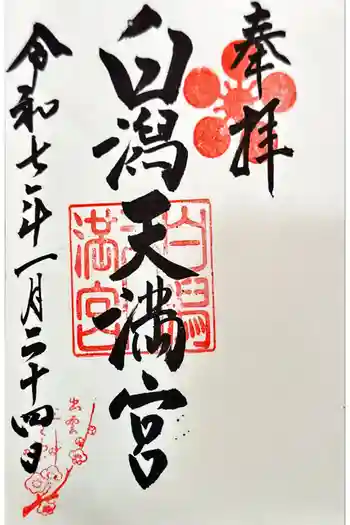 奉拝
白潟天満宮
令和七年一月二十四日
白潟天満宮
出雲